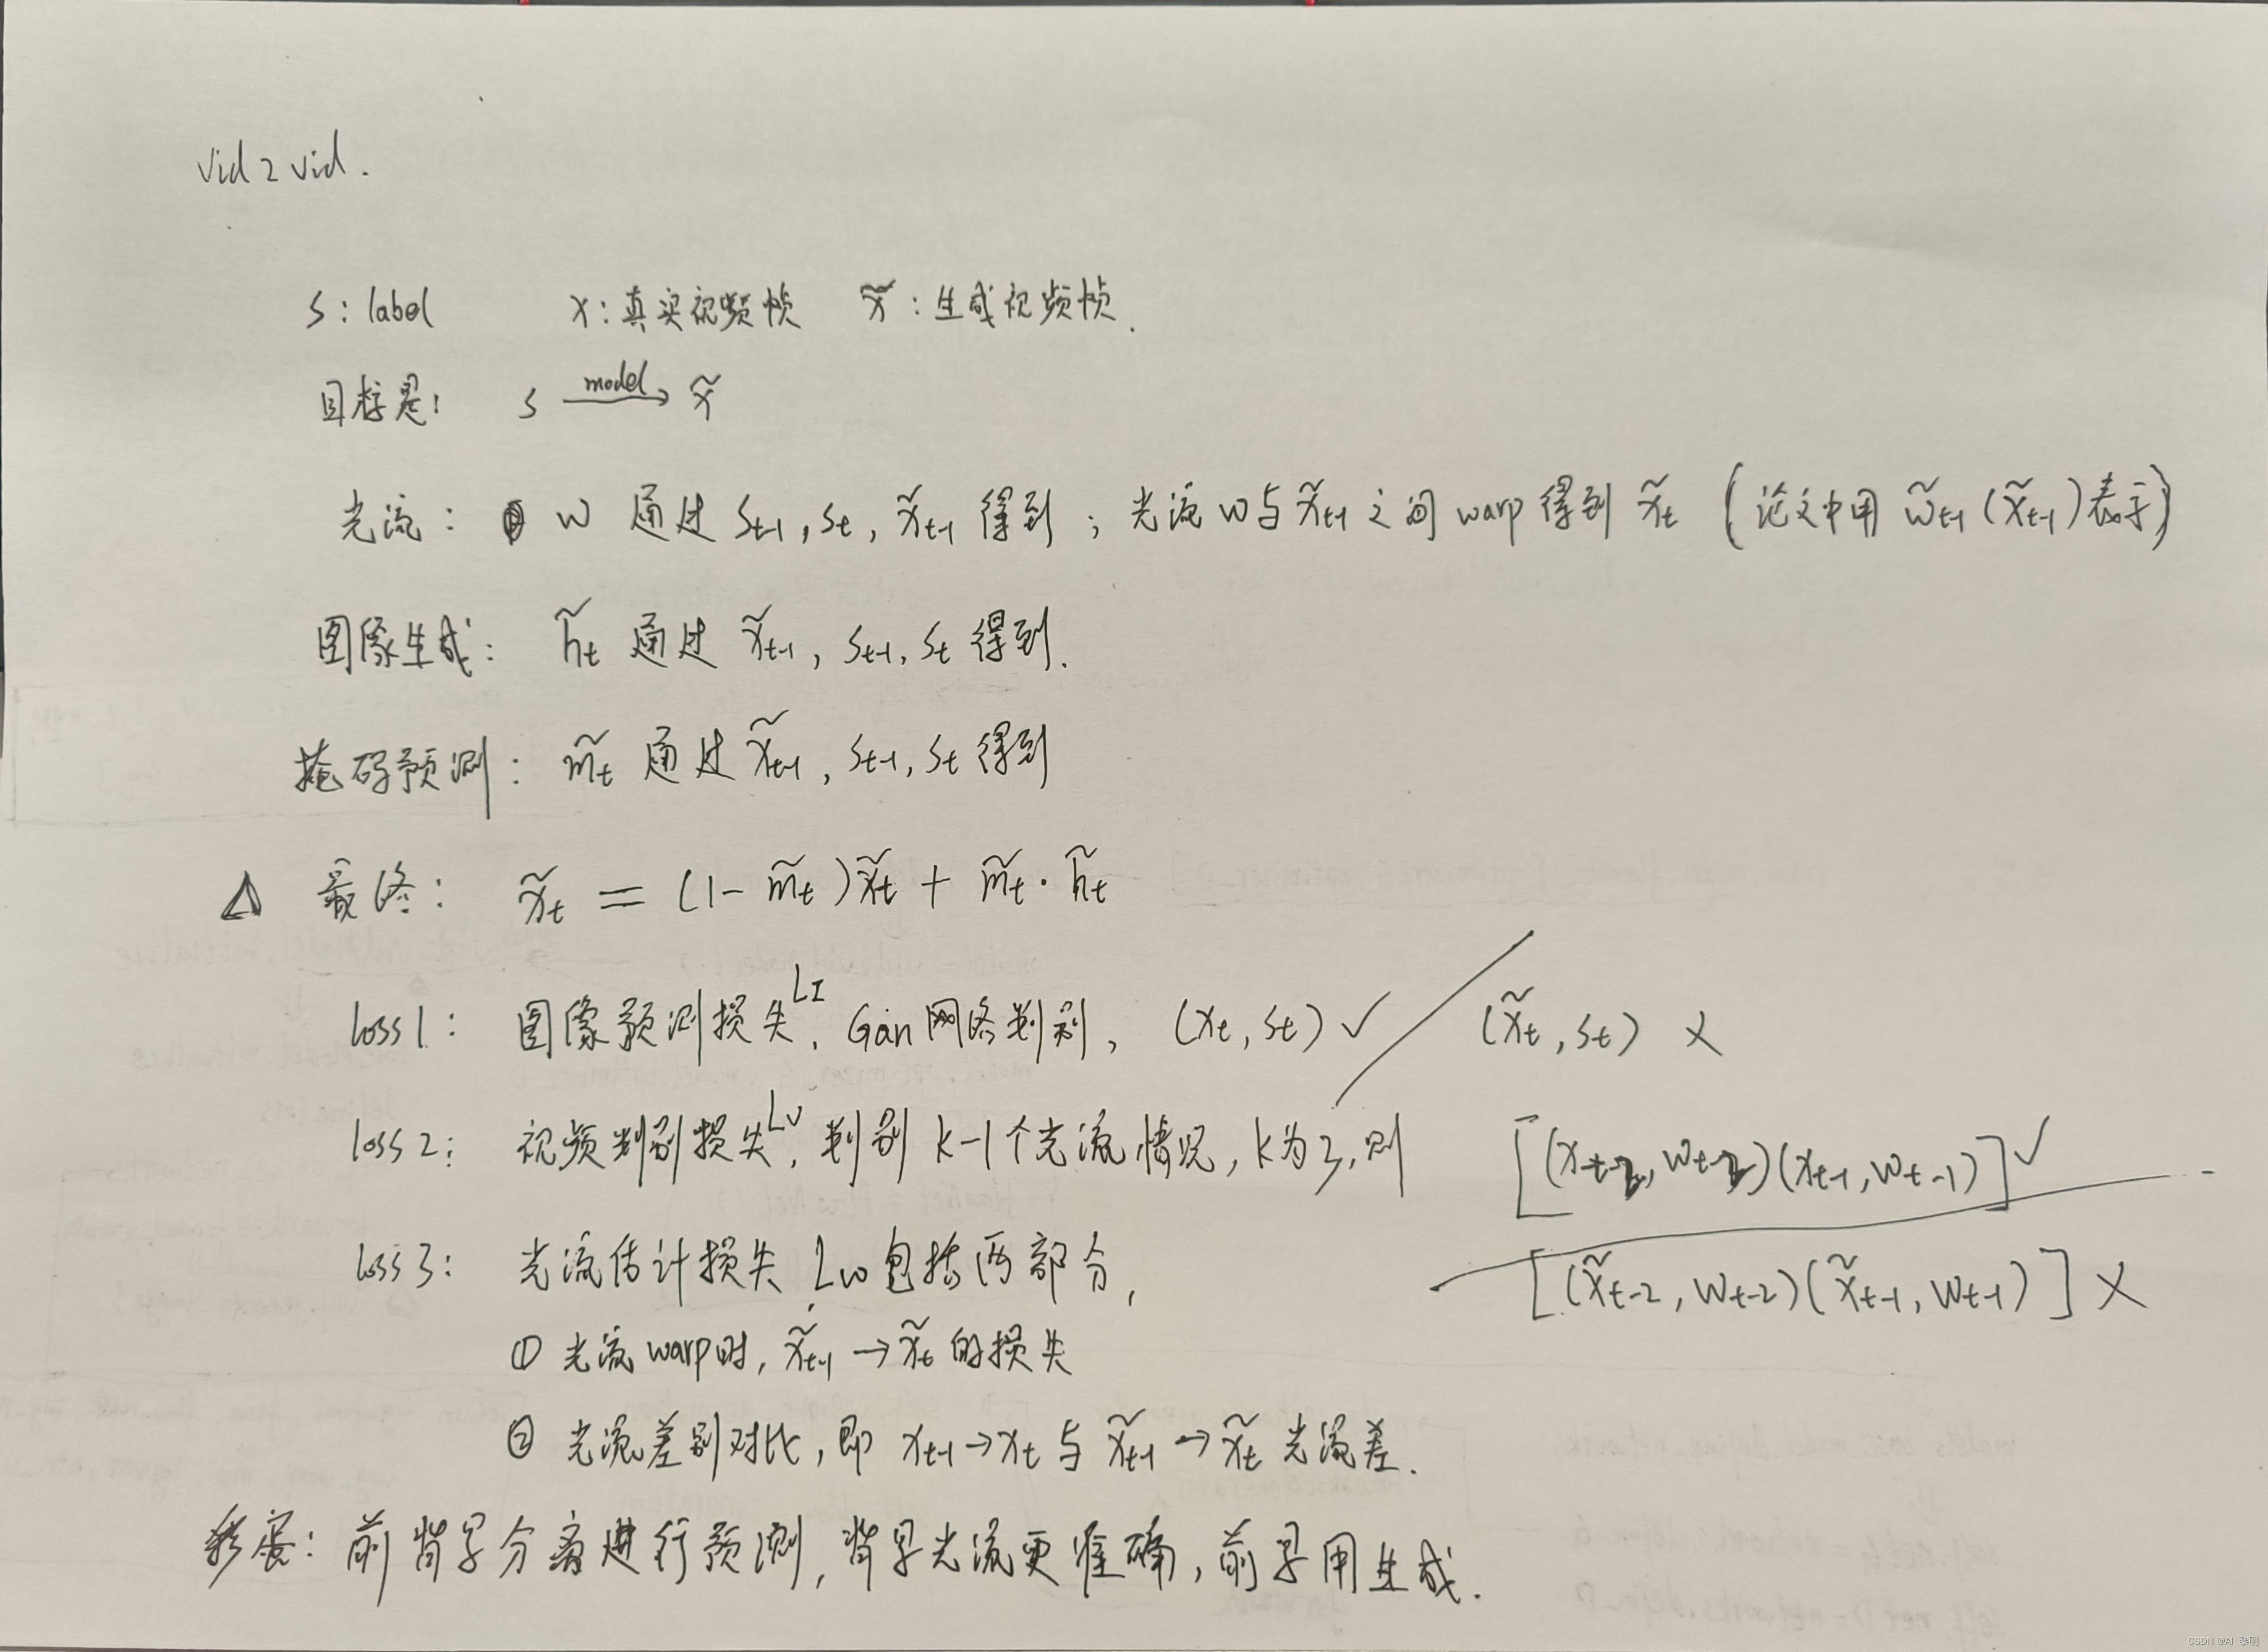 vid2vid.
s: label x: 真实视频帧 x̃: 生成视频帧.
目标是: s —model→ x̃
光流: w 通过 s_{t-1}, s_t, x̃_{t-1} 得到; 光流w与x̃_{t-1}之间warp得到 x̃_t (论文中用 w̃_{t-1}(x̃_{t-1})表示)
图像生成: h̃_t 通过 x̃_{t-1}, s_{t-1}, s_t 得到.
掩码预测: m̃_t 通过 x̃_{t-1}, s_{t-1}, s_t 得到
△ 最终: x̃_t = (1-m̃_t)x̃_t + m̃_t·h̃_t
loss1: 图像预测损失L_I, Gan网络判别, (x_t, s_t) ✓ / (x̃_t, s_t) ×
loss2: 视频判别损失L_V, 判别k-1个光流情况, k为3, 则 [(x_{t-2}, w_{t-2})(x_{t-1}, w_{t-1})] ✓
[(x̃_{t-2}, w_{t-2})(x̃_{t-1}, w_{t-1})] ×
loss3: 光流估计损失 L_w包括两部分,
① 光流warp时, x̃_{t-1}→x̃_t 的损失
② 光流差别对比, 即 x_{t-1}→x_t 与 x̃_{t-1}→x̃_t 光流差.
彩蛋: 前背景分离进行预测, 背景光流更准确, 前景用生成.
CSDN @AI 黎明